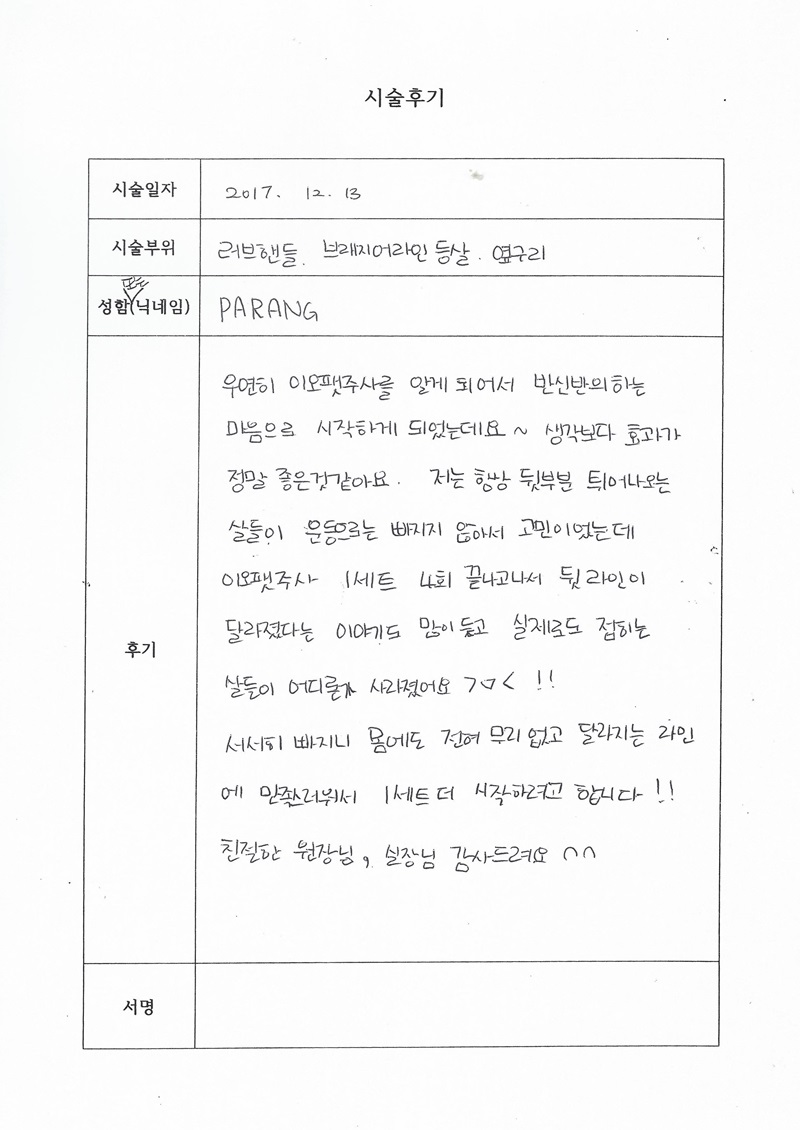 시술후기
시술일자 2017. 12. 13
시술부위 러브핸들. 브래지어라인 등살. 옆구리
또는
성함(닉네임) PARANG
우연히 이오팻주사를 알게 되어서 반신반의하는
마음으로 시작하게 되었는데요 ~ 생각보다 효과가
정말 좋은것같아요. 저는 항상 뒷부분 튀어나오는
살들이 운동으로는 빠지지 않아서 고민이었는데
이오팻주사 1세트 4회 끝나고나서 뒷라인이
달라졌다는 이야기도 많이 듣고 실제로도 접히는
후기
살들이 어디론가 사라졌어요 >ㅁ< !!
서서히 빠지니 몸에도 전혀 무리 없고 달라지는 라인
에 만족스러워서 1세트 더 시작하려고 합니다 !!
친절한 원장님, 실장님 감사드려요 ∩∩
서명